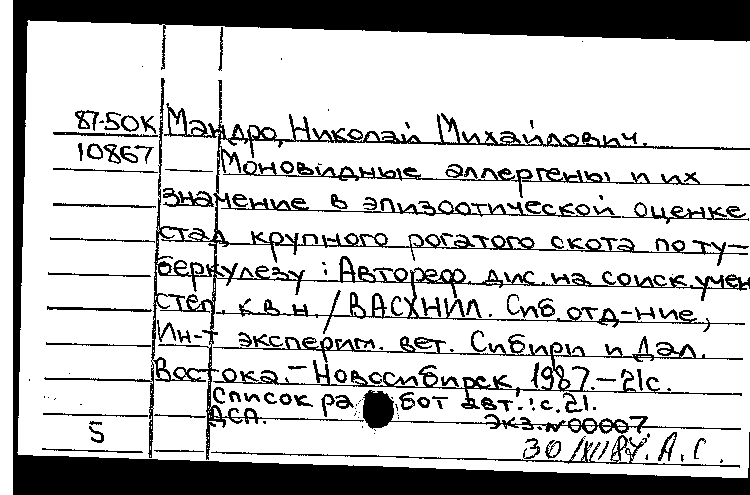 87-50К Мандро, Николай Михайлович.
10867 Моновидные аллергены и их
значение в эпизоотической оценке
стад крупного рогатого скота по ту-
беркулезу : Автореф. дис. на соиск. учен
степ. к.в.н. / ВАСХНИЛ. Сиб. отд-ние,
Ин-т эксперим. вет. Сибири и Дал.
Востока. - Новосибирск, 1987. - 21с.
Список работ авт.: с.21.
ДСП. Экз. № 00007
5
30/XII 87. А.С.